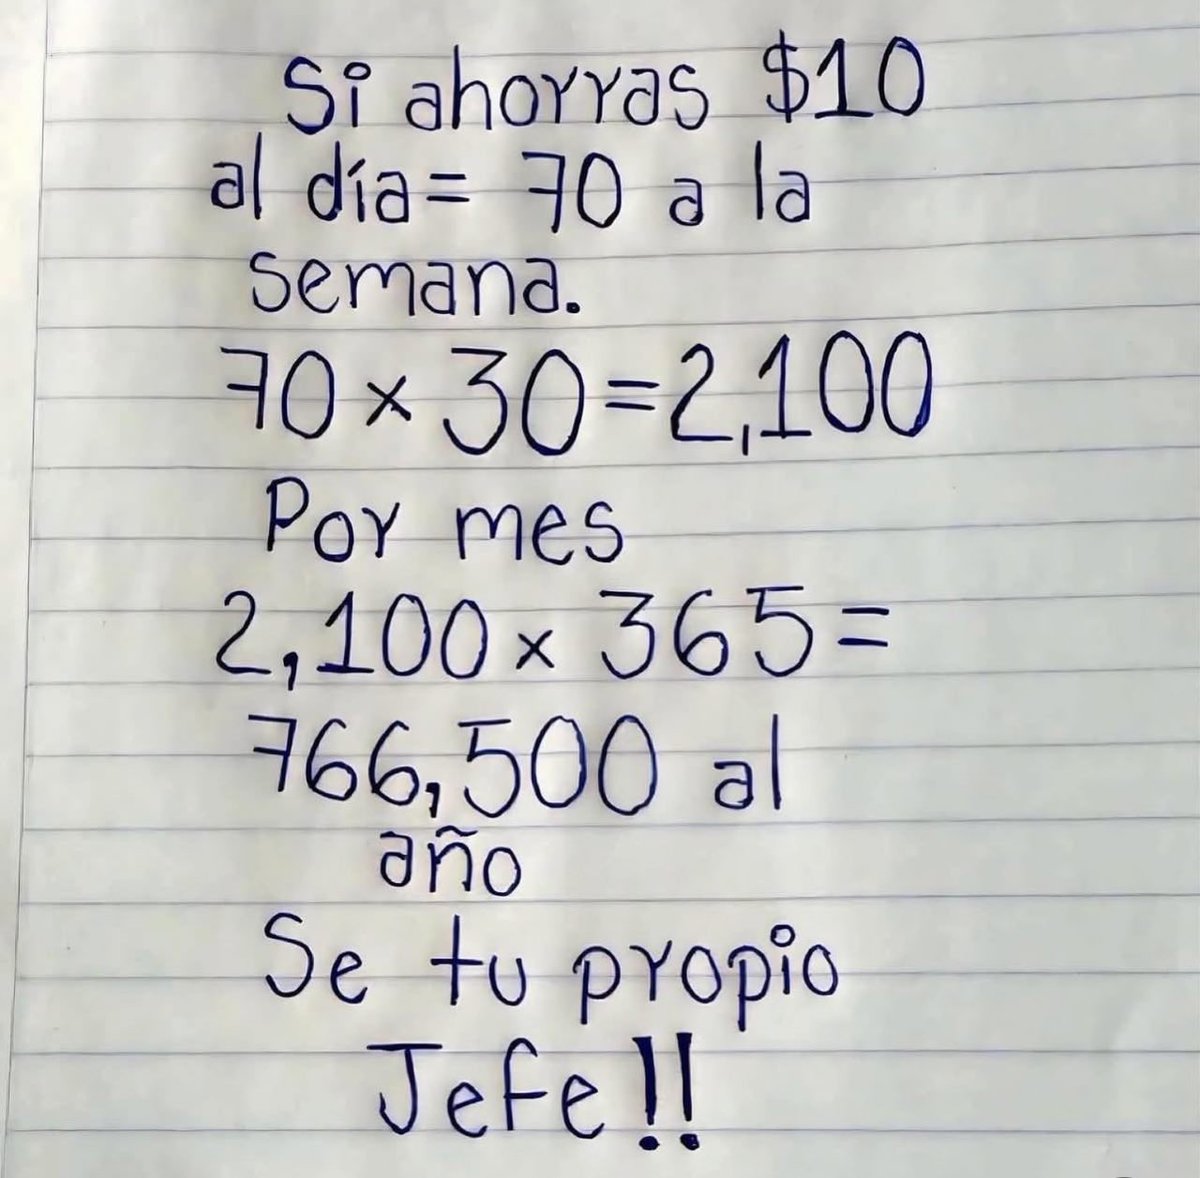 Si ahorras $10
al día= 70 a la
semana.
70 x 30=2,100
Por mes
2,100 x 365=
766,500 al
año
Se tu propio
Jefe!!